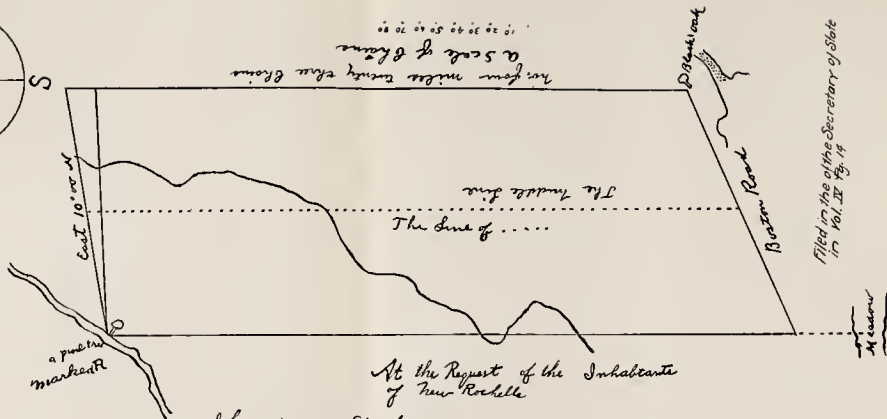 S
10 20 30 40 50 60 70 80
a Scale of Chains
no. four miles twenty three chains
D Black oak
East 10°00 N
The middle Line
Boston Road
Filed in the of the Secretary of State
in Vol. IV Pg. 14
Meadow
a pine tree
Marked R
At the Request of the Inhabtants
of New Rochelle